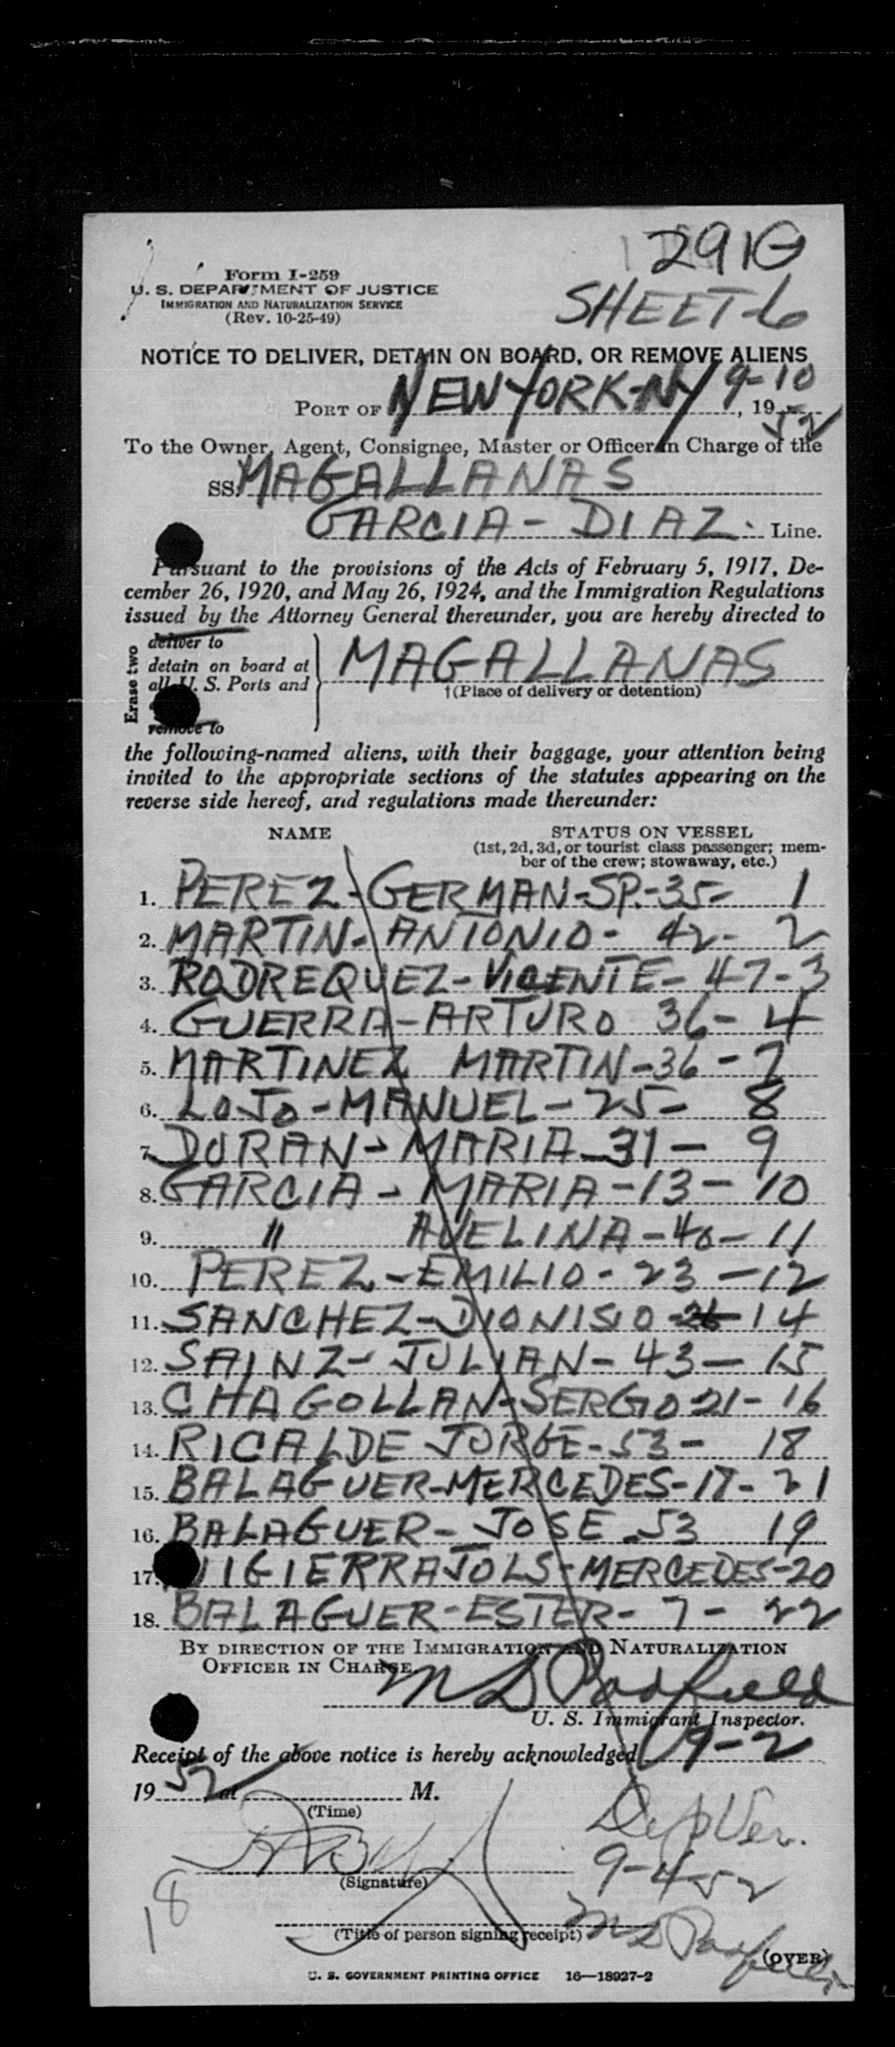 291G
SHEET-6
Form I-259
U. S. DEPARTMENT OF JUSTICE
IMMIGRATION AND NATURALIZATION SERVICE
(Rev. 10-25-49)
NOTICE TO DELIVER, DETAIN ON BOARD, OR REMOVE ALIENS
PORT OF NEW YORK-NY 9-10, 1952
To the Owner, Agent, Consignee, Master or Officer in Charge of the
SS. MAGALLANAS
GARCIA - DIAZ. Line.
Pursuant to the provisions of the Acts of February 5, 1917, De-
cember 26, 1920, and May 26, 1924, and the Immigration Regulations
issued by the Attorney General thereunder, you are hereby directed to
Erase two
deliver to
detain on board at
all U. S. Ports and
remove to
MAGALLANAS
†(Place of delivery or detention)
the following-named aliens, with their baggage, your attention being
invited to the appropriate sections of the statutes appearing on the
reverse side hereof, and regulations made thereunder:
NAME STATUS ON VESSEL
(1st, 2d, 3d, or tourist class passenger; mem-
ber of the crew; stowaway, etc.)
1. PEREZ-GERMAN-SP.-35- 1
2. MARTIN-ANTONIO- 42- 2
3. RODREQUEZ-VICENTE-47-3
4. GUERRA-ARTURO 36-4
5. MARTINEZ MARTIN-36-7
6. LOJO-MANUEL-25- 8
7. DURAN-MARIA-31- 9
8. GARCIA-MARIA-13-10
9. " AVELINA-40-11
10. PEREZ-EMILIO-23-12
11. SANCHEZ-DIONISIO-26-14
12. SAINZ-JULIAN-43-15
13. CHAGOLLAN-SERGO-21-16
14. RICALDE JORGE-53- 18
15. BALAGUER-MERCEDES-17-21
16. BALAGUER-JOSE-53 19
17. MERCEDES-20
18. BALAGUER-ESTER-7-22
BY DIRECTION OF THE IMMIGRATION AND NATURALIZATION
OFFICER IN CHARGE.
M D Padfield
U. S. Immigrant Inspector.
Receipt of the above notice is hereby acknowledged 9-2
1952 at M.
(Time)
Dep Ver.
9-4-52
(Signature)
18
M D Padfield
(Title of person signing receipt)
(OVER)
U. S. GOVERNMENT PRINTING OFFICE 16—18927-2